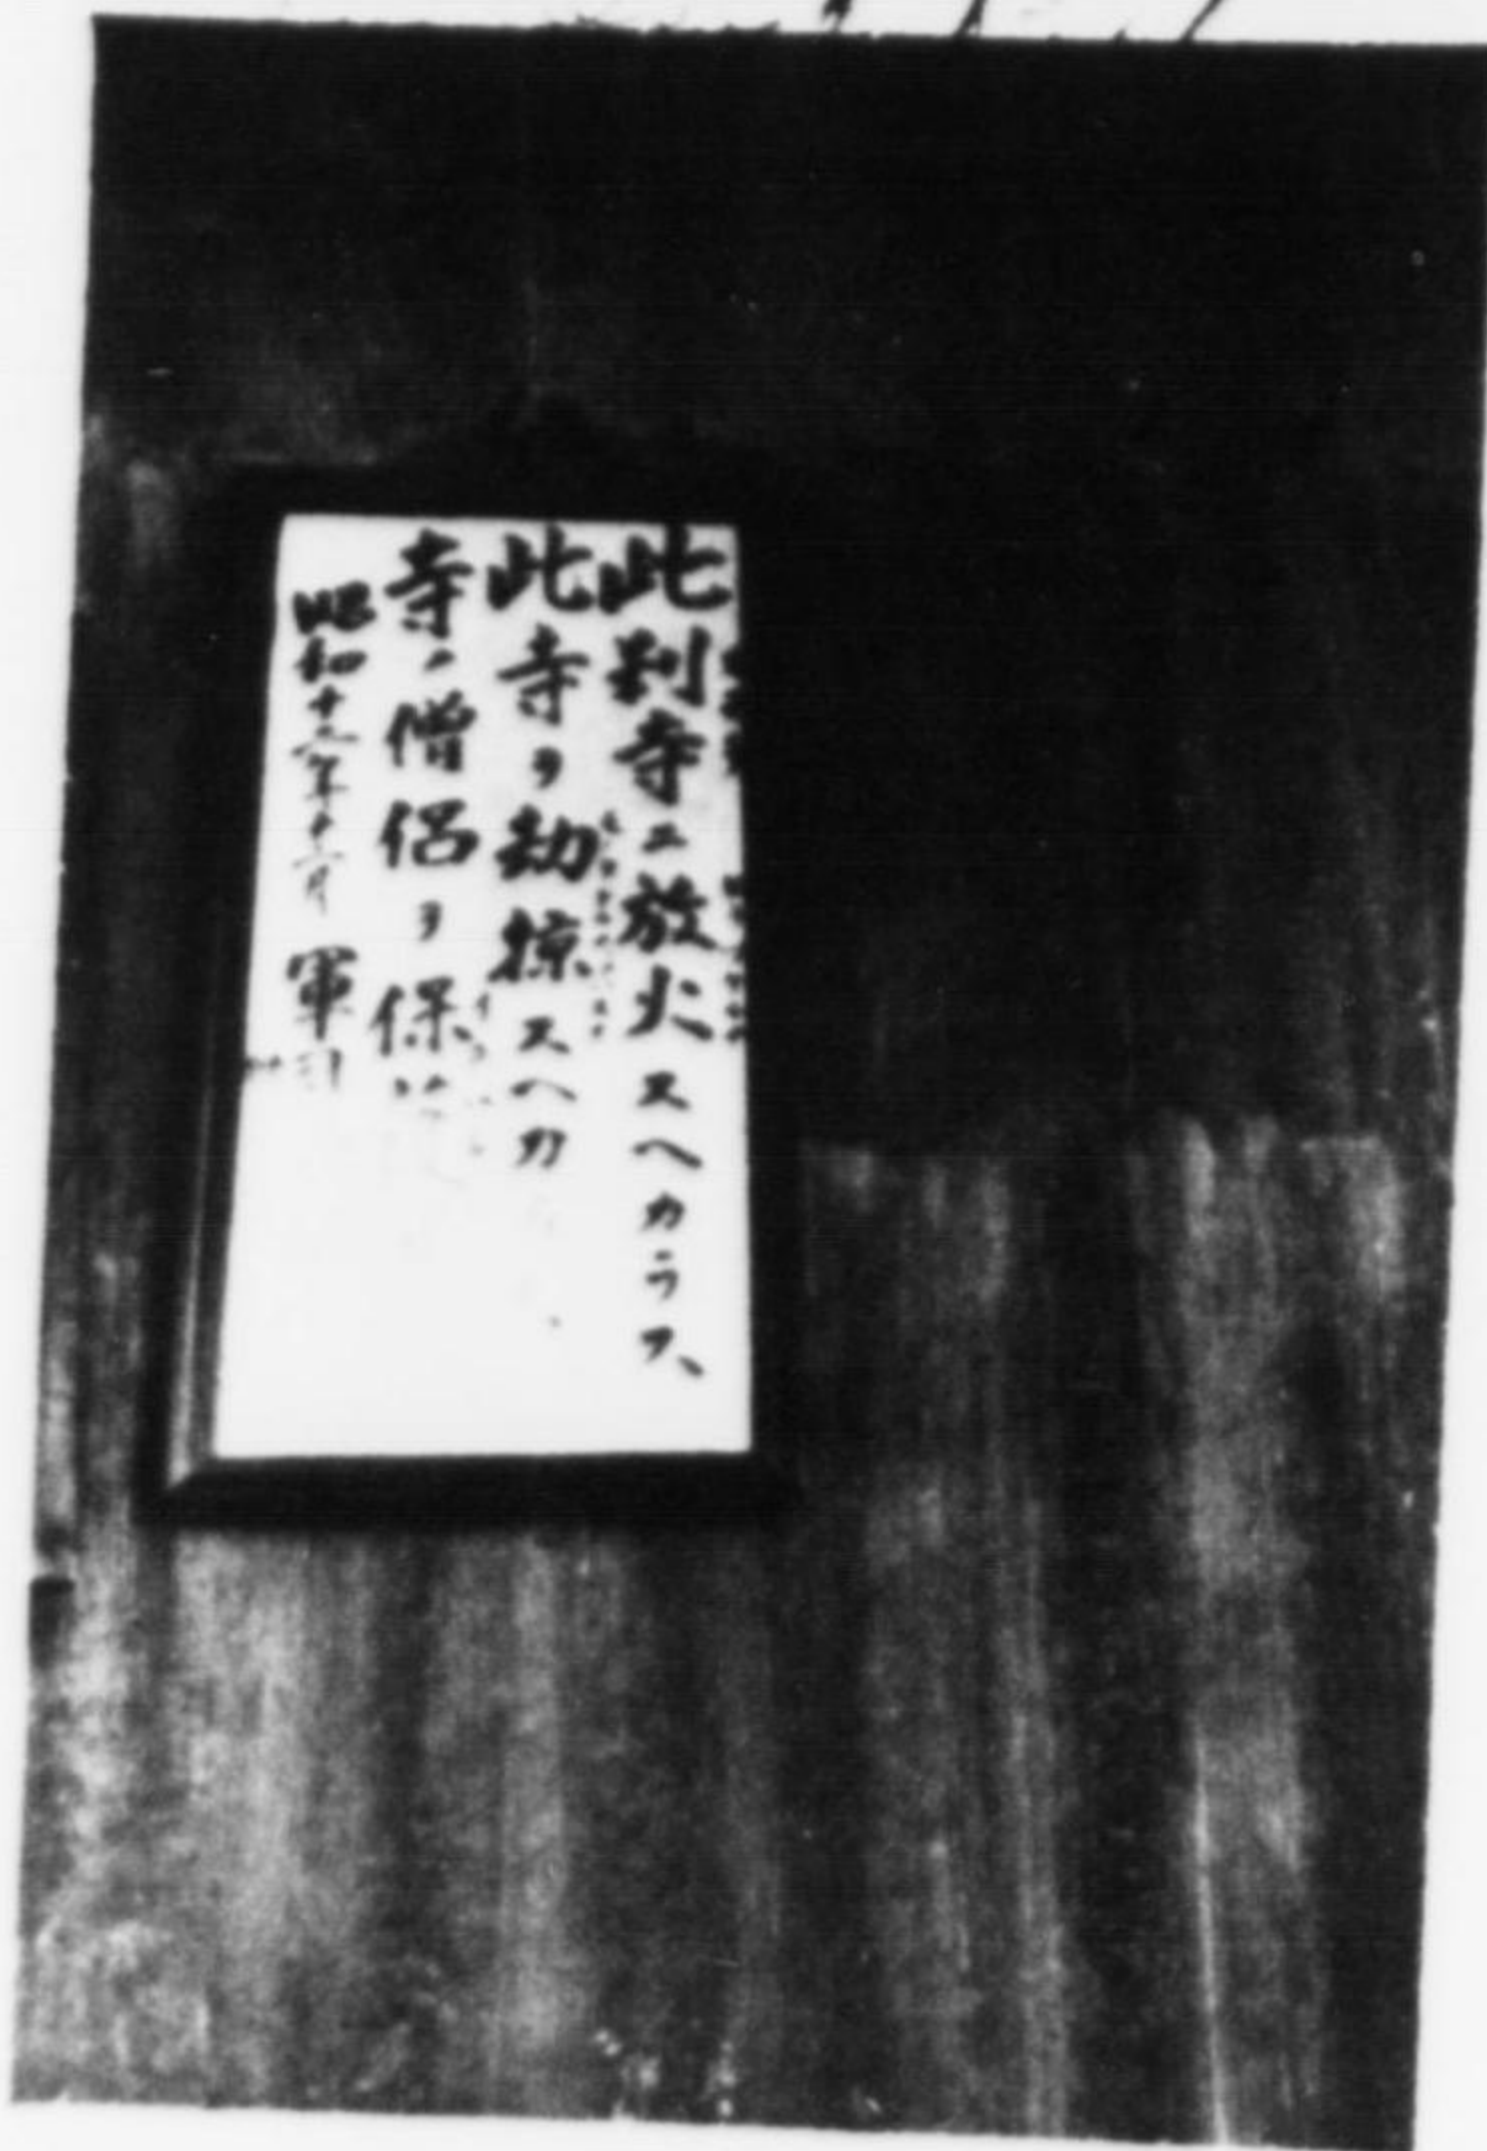 此別寺ニ放火スヘカラス、
此寺ヲ劫掠スヘカ
寺ノ僧侶ヲ保
昭和十二年十二月 軍